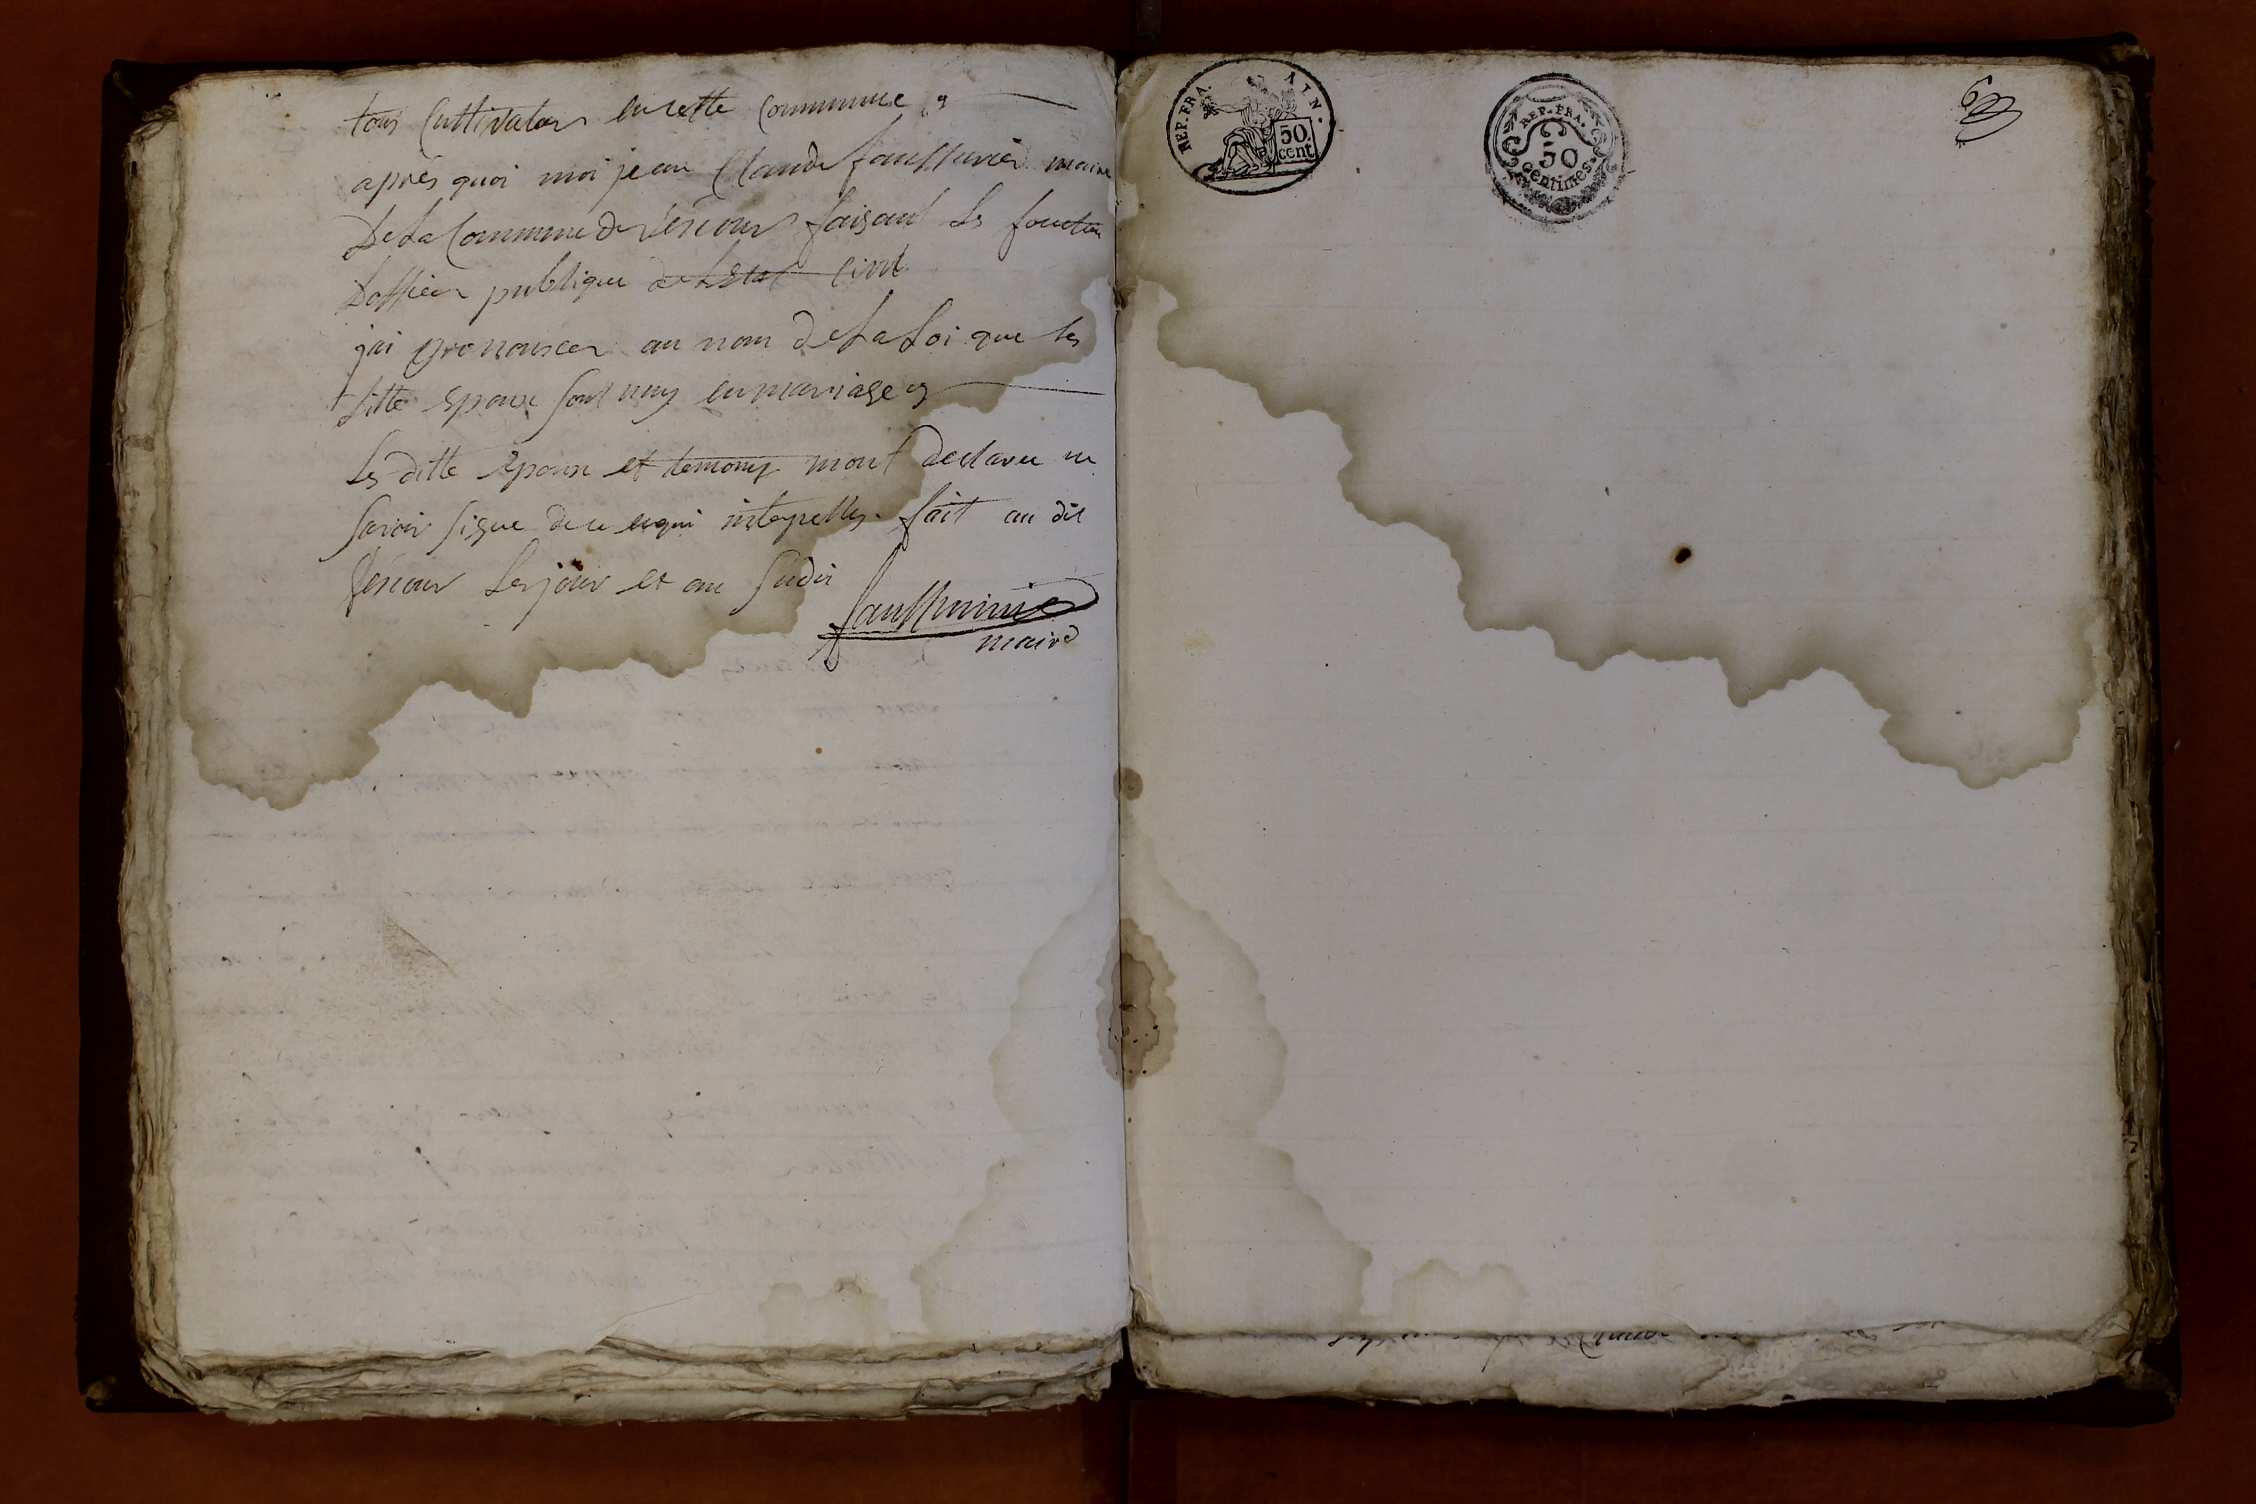 tous Cultivateur en cette Commune
après quoi moi jean Claude maire
De La Commune de faisant Les fonction
Dofficier publique de LEtat Civil
jai prononcer au nom De La Loi que les
ditte Epoux sont uny en mariage
Les ditte Epoux et temoins mont declarer ne
savoir signe de ce enqui interpelles. fait au dit
Les jour et an Sudis
maire
REP. FRA. 50 cent
REP. FRA. 50 centimes.